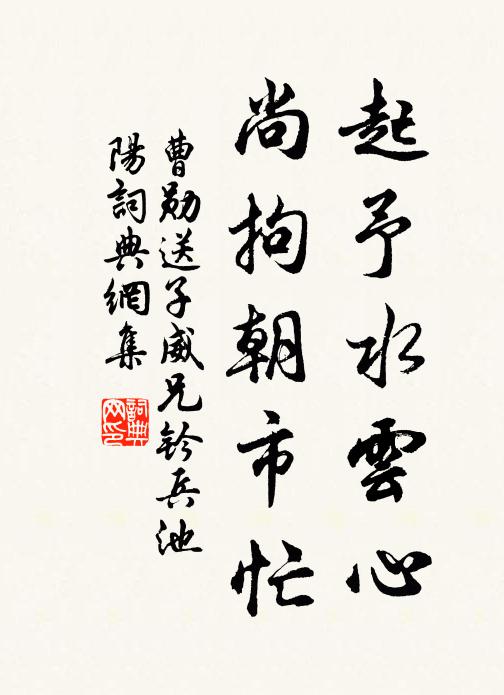 起予水雲心
尚拘朝市忙
曹勛送子威兄鈐兵池
陽詞典網集
詞典網印